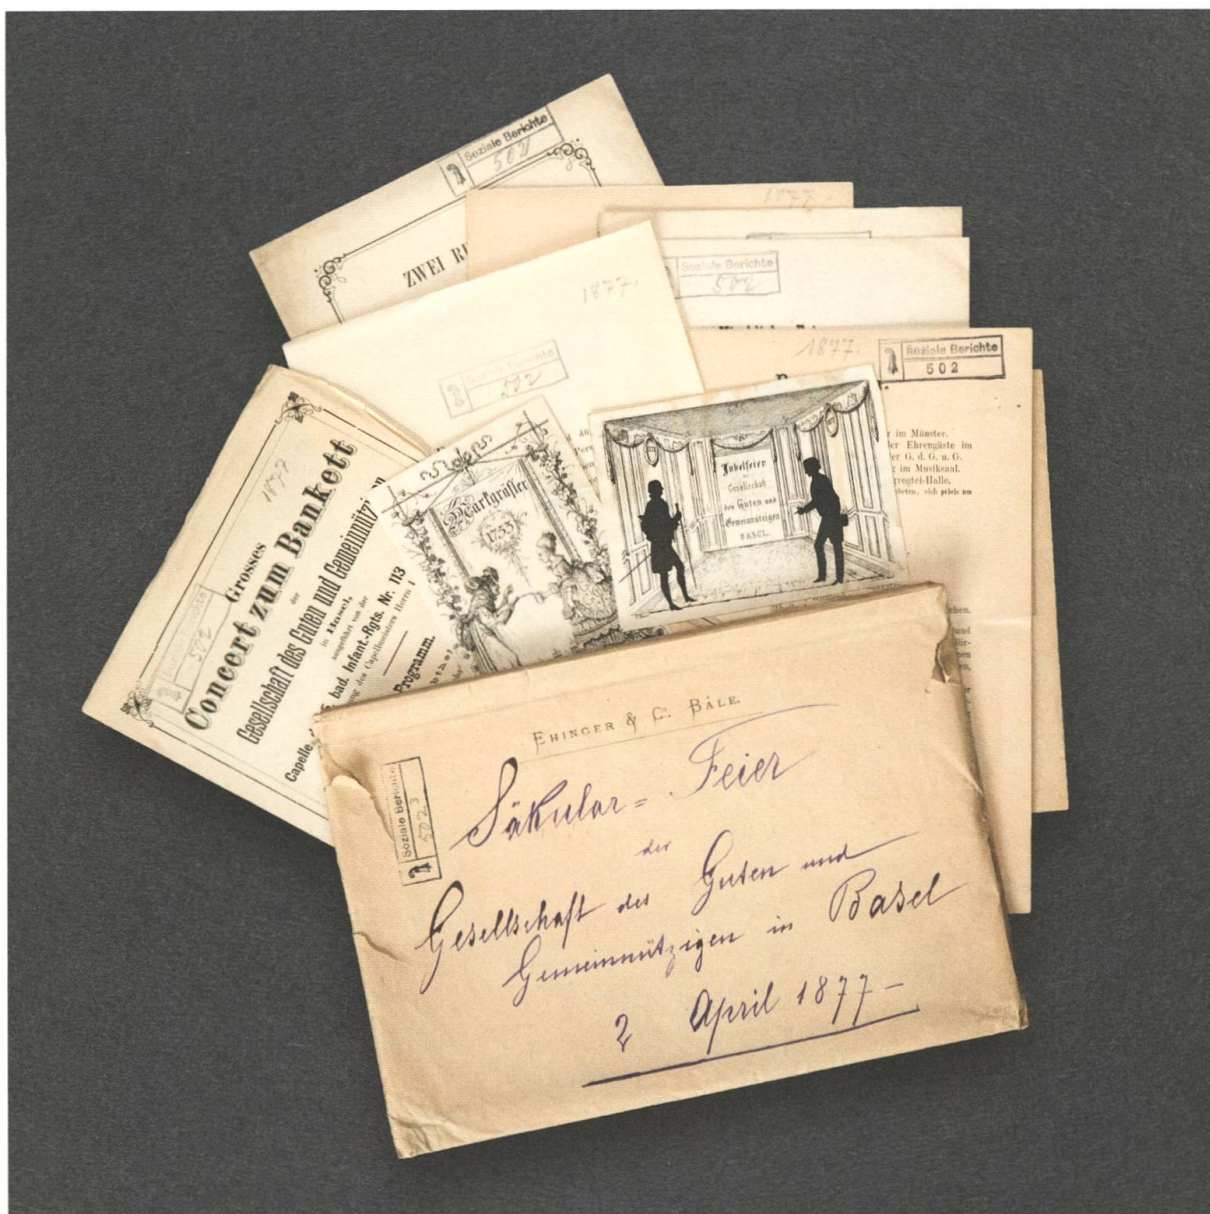 Soziale Berichte
502
ZWEI
1877
Soziale Berichte
502
1877.
Soziale Berichte
502
1877.
Soziale Berichte
502
im Münster.
Ehrengäste im
G. d. G. u. G.
im Musiksaal.
vogtei-Halle.
1877
Soziale Berichte
502
Grosses
Concert zum Bankett
der
Gesellschaft des Guten und Gemeinnützigen
in Basel,
ausgeführt von der
Capelle
bad. Infant.-Rgts. Nr. 113
des Capellmeisters Herrn
Programm.
Markgräfler
1753
Jubelfeier
der
Gesellschaft
des Guten und
Gemeinnützigen
BASEL.
EHINGER & Cie. BÂLE
Soziale Berichte
502 3
Säkular= Feier
der
Gesellschaft des Guten und
Gemeinnützigen in Basel
2 April 1877 –